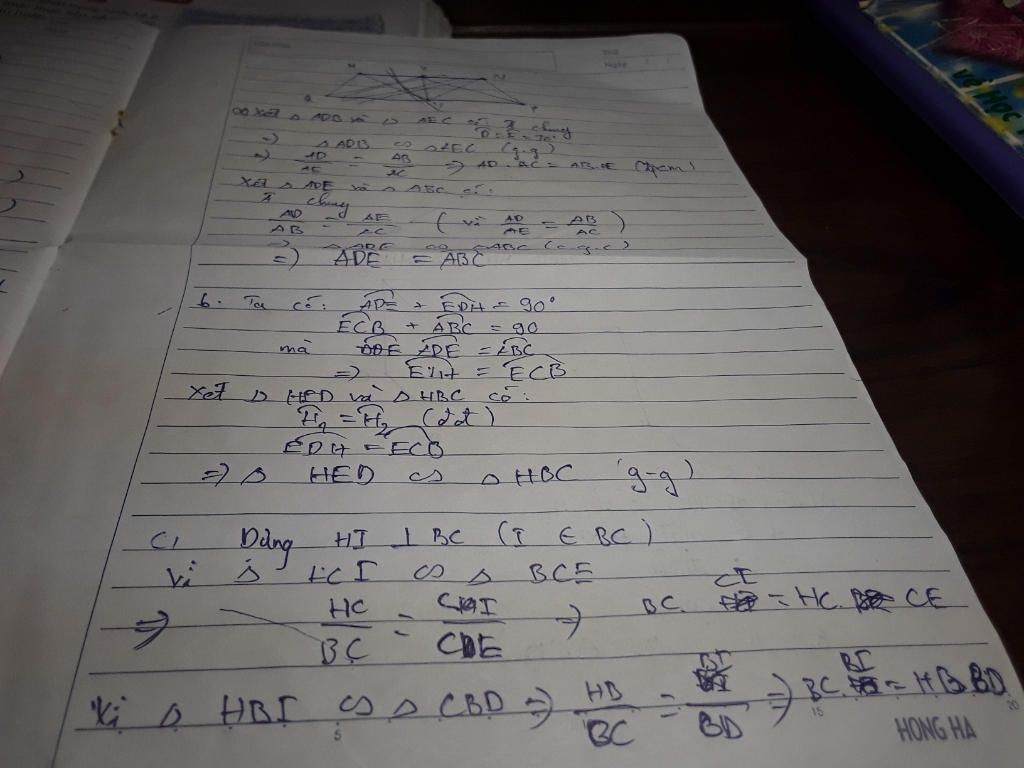 Thứ
Ngày
M N
Q P
a) Xét △ ADB và △ AEC có: Â chung
D = E = 90°
=> △ ADB ∽ △ AEC (g-g)
=> AD/AE = AB/AC => AD. AC = AB. AE (đpcm)
Xét △ ADE và △ ABC có:
Â chung
AD/AB = AE/AC (vì AD/AE = AB/AC)
=> △ ADE ∽ △ ABC (c-g-c)
=> ADE = ABC
b. Ta có: ADE + EDH = 90°
ECB + ABC = 90
mà ADE = ABC
=> EDH = ECB
Xét △ HED và △ HBC có:
H₁ = H₂ (đđ)
EDH = ECB
=> △ HED ∽ △ HBC (g-g)
c, Dựng HI ⊥ BC (I ∈ BC)
Vì △ HCI ∽ △ BCE
=> HC/BC = CI/CE => BC. CI = HC. CE
Vì △ HBI ∽ △ CBD => HB/BC = BI/BD => BC. BI = HB. BD
5 15 20
HONG HA
VĂN HỌC